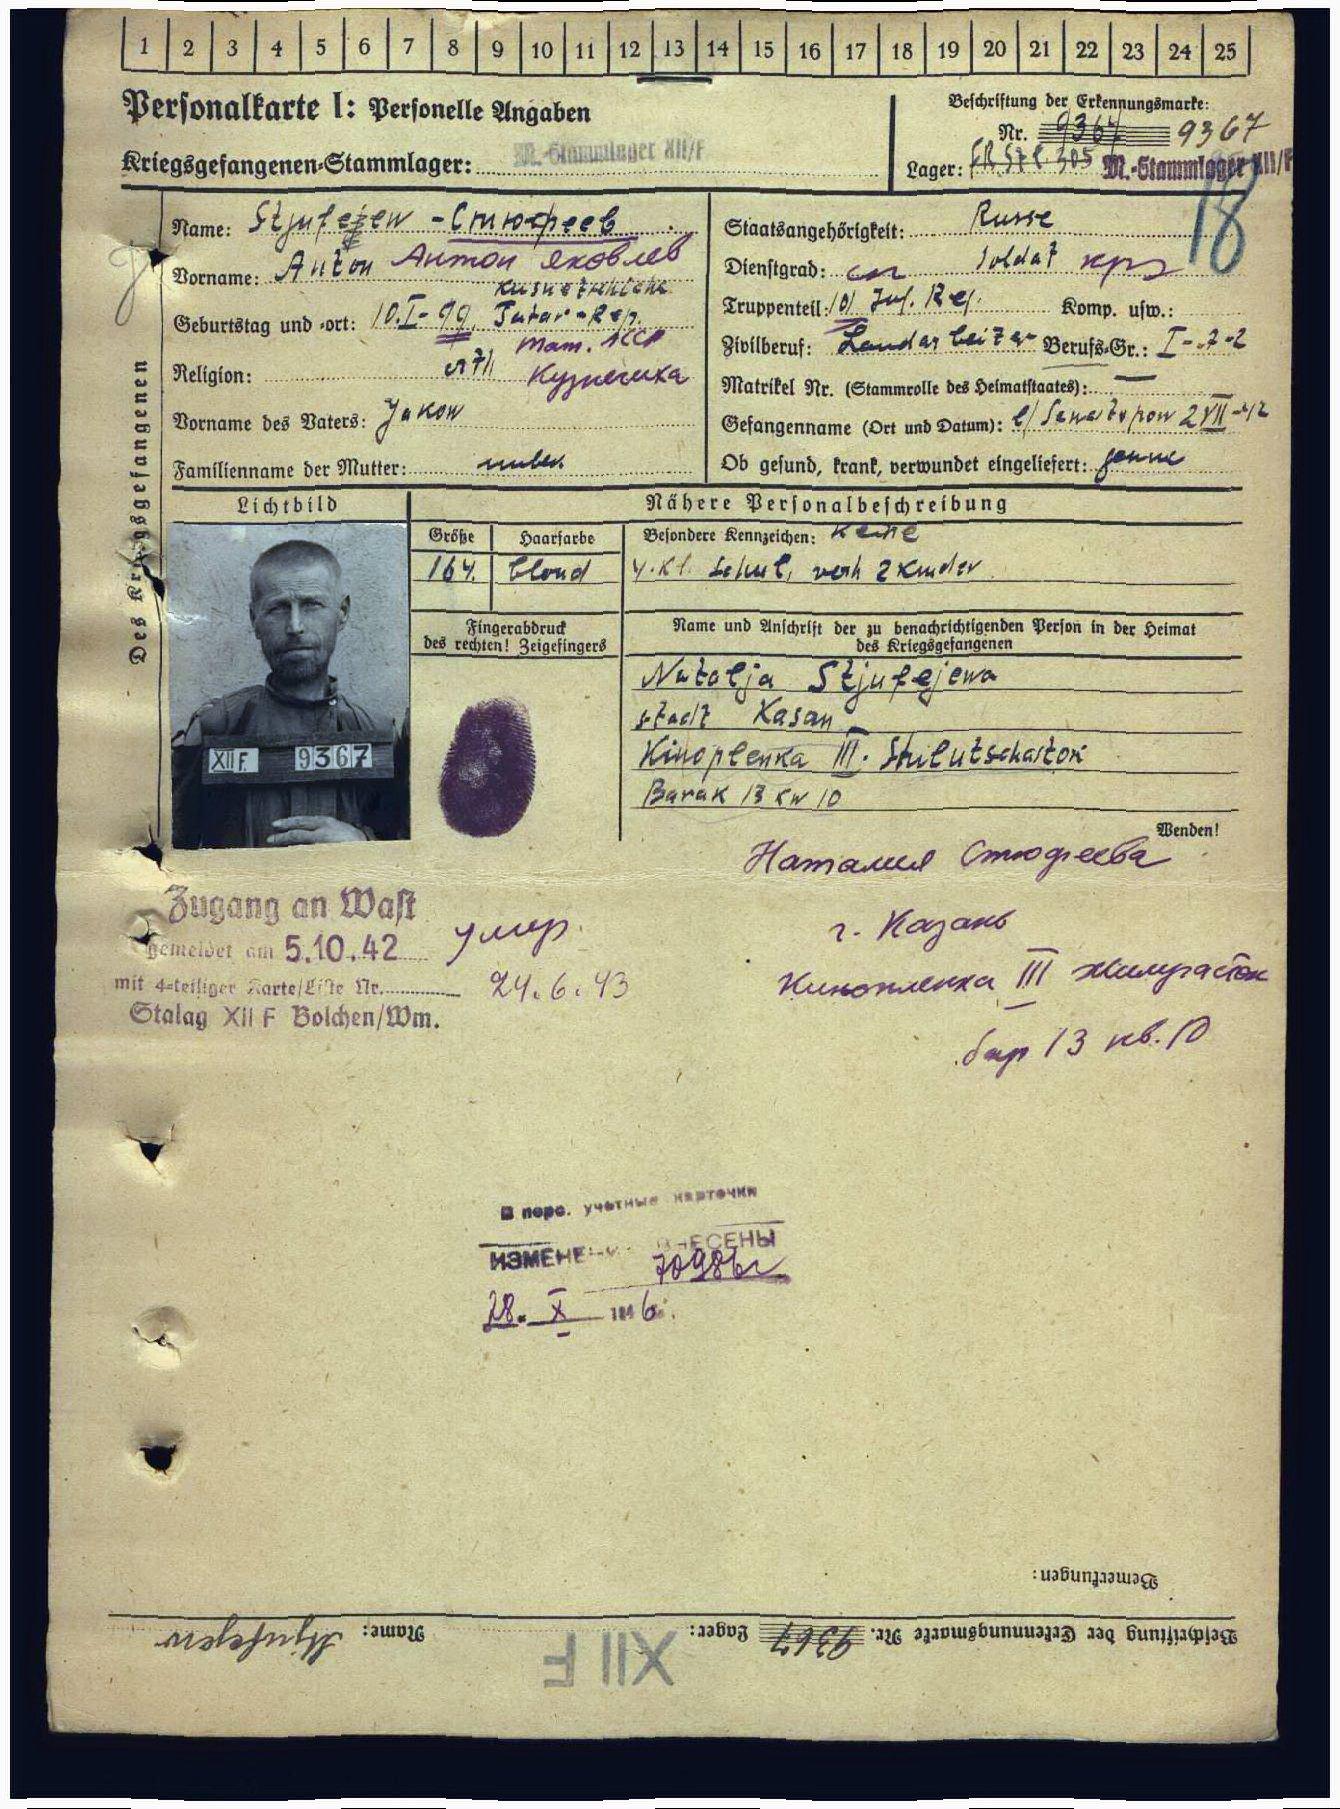 1 2 3 4 5 6 7 8 9 10 11 12 13 14 15 16 17 18 19 20 21 22 23 24 25
Personalkarte I: Personelle Angaben
Kriegsgefangenen-Stammlager: M.-Stammlager XII/F
Beschriftung der Erkennungsmarke:
Nr. 9367 9367
Lager: FR.STL. 305 M.-Stammlager XII/F
18
Des Kriegsgefangenen
Name: Stjufejew - Стюфеев
Vorname: Anton Антон Яковлев
Geburtstag und -ort: 10.I-99. Tatar-Rep.
Тат. АССР
Religion: Кузнечиха
Vorname des Vaters: Jakow
Familienname der Mutter: unbek.
Staatsangehörigkeit: Russe
Dienstgrad: Soldat крэ
Truppenteil: 101 Inf. Reg. Komp. usw.:
Zivilberuf: Landarbeiter Berufs-Gr.: I-7-2
Matrikel Nr. (Stammrolle des Heimatstaates): —
Gefangenname (Ort und Datum): b/Sewastopow 2 VII-42
Ob gesund, krank, verwundet eingeliefert:
Lichtbild
XII F 9367
Nähere Personalbeschreibung
Größe Haarfarbe Besondere Kennzeichen: keine
164. blond 4. Kl. Schul, verh 2 Kinder
Fingerabdruck
des rechten! Zeigefingers
Name und Anschrift der zu benachrichtigenden Person in der Heimat
des Kriegsgefangenen
Natalja Stjufejewa
stadt Kasan
Kinoplenka III. Shilutschastok
Barak 13 kw 10
Wenden!
Наталия Стюфеева
г. Казань
Кинопленка III жилучасток
бар 13 кв. 10
Zugang an Wast
gemeldet am 5.10.42
mit 4-teiliger Karte/Liste Nr.
Stalag XII F Bolchen/Wm.
умер.
24.6.43
В перс. учетные карточки
ИЗМЕНЕНИЯ ВНЕСЕНЫ
28. X 1946.
Bemerkungen:
Beschriftung der Erkennungsmarke Nr. 9367 Lager: XII F Name: Stjufejew